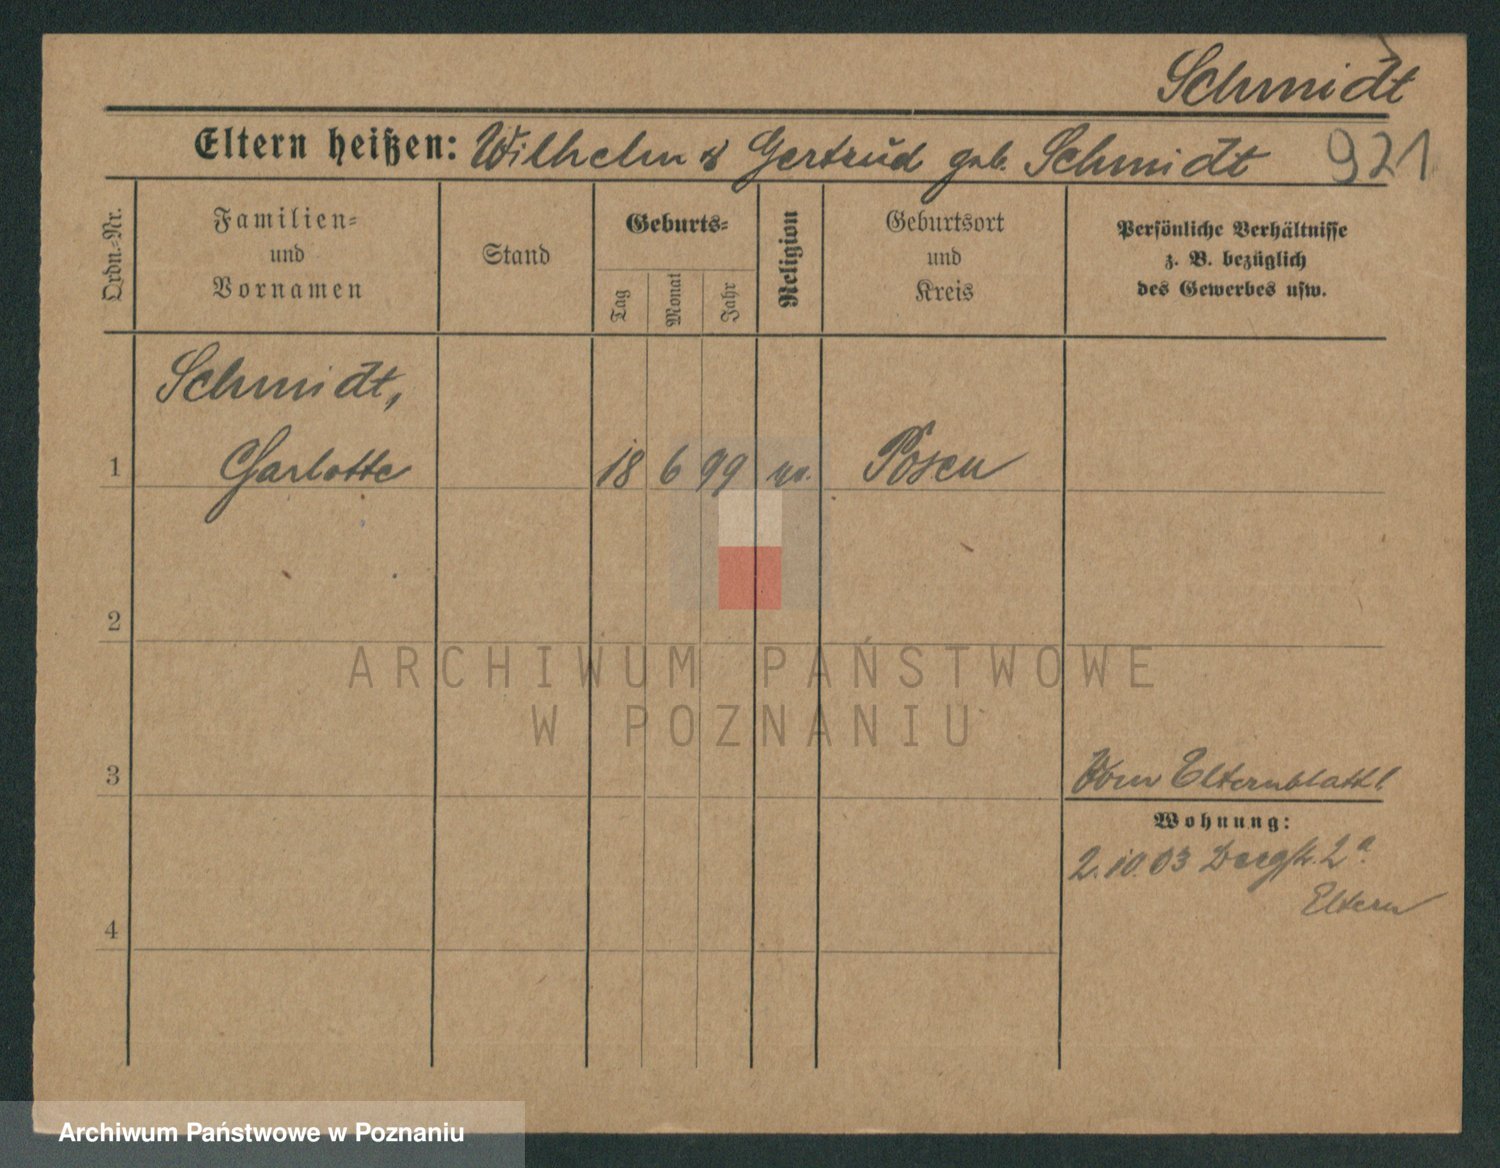 Schmidt
Eltern heißen: Wilhelm & Gertrud geb. Schmidt 921
Ordn.-Nr.
Familien-
und
Vornamen
Stand
Geburts-
Tag
Monat
Jahr
Religion
Geburtsort
und
Kreis
Persönliche Verhältnisse
z. B. bezüglich
des Gewerbes usw.
Schmidt,
1 Charlotte 18 6 99 Posen
2
ARCHIWUM PAŃSTWOWE
W POZNANIU
3 Vom Elternblatt
Wohnung:
2.10.03 2a
Eltern
4
Archiwum Państwowe w Poznaniu